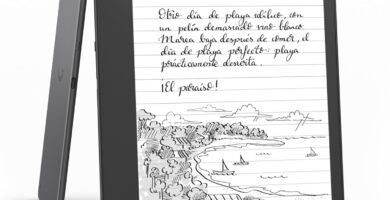 Otro día de playa idílico, con
un pelín demasiado vino blanco
Marea baja después de comer, el
día de playa perfecto: playa
prácticamente desierta.
¡El paraíso!